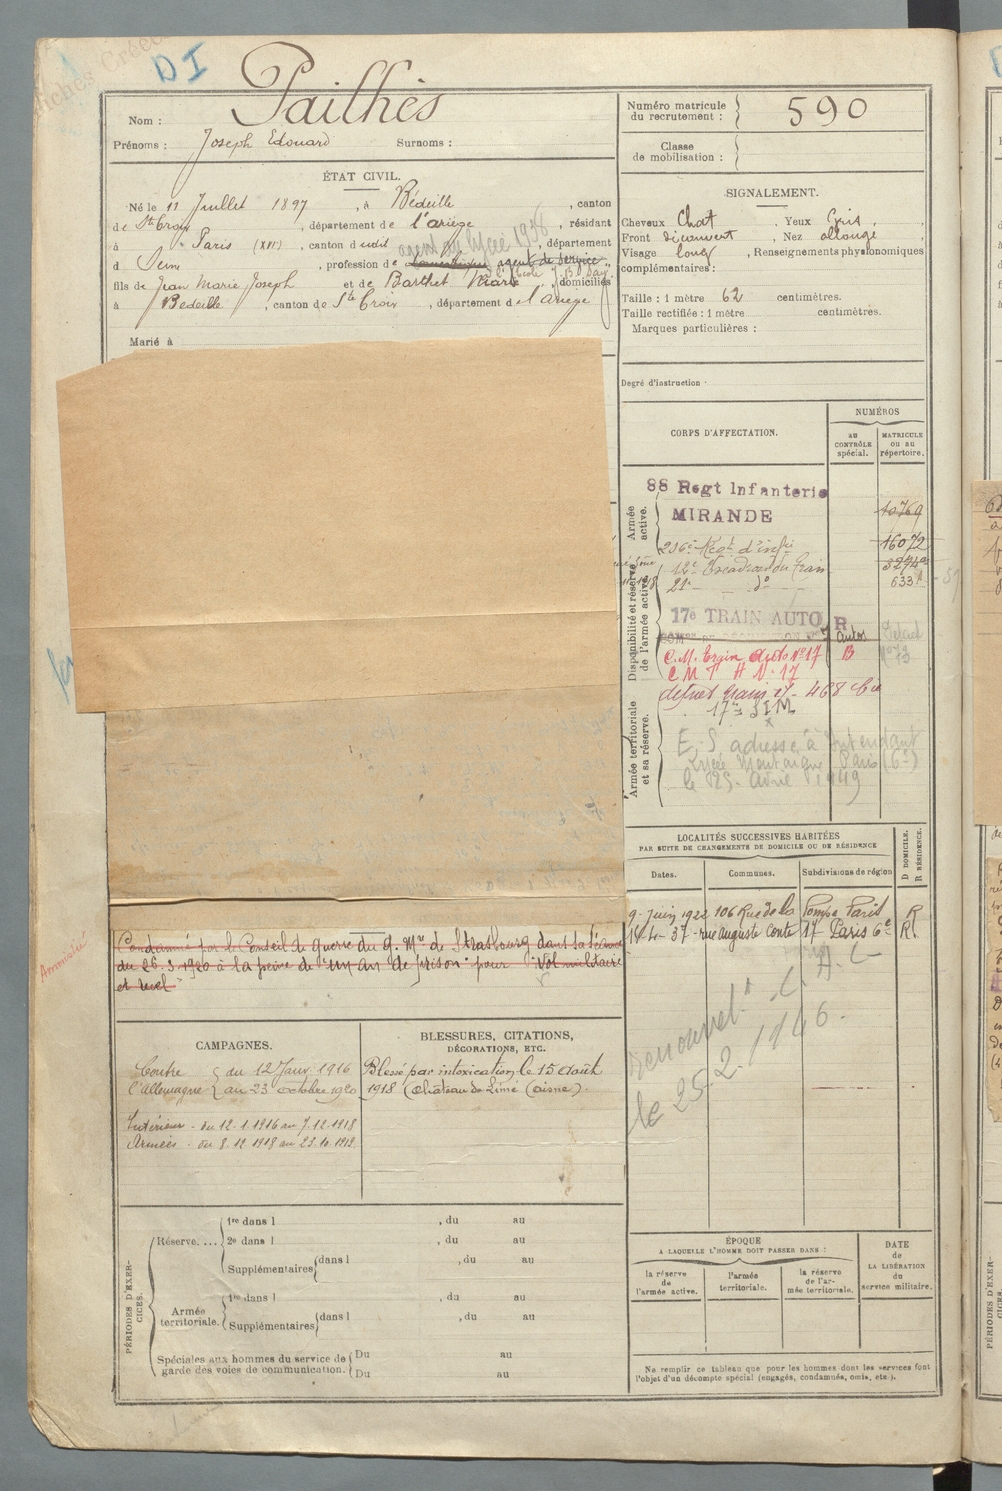 DI
Nom : Pailhès
Prénoms : Joseph Edouard Surnoms :
Numéro matricule du recrutement : 590
Classe de mobilisation :
ÉTAT CIVIL.
Né le 11 Juillet 1897, à Bédeille, canton
de Ste Croix, département de l'ariège, résidant
à Paris (XVIe), canton du dudit, département
d Seine, profession de agent de service
fils de Jean Marie Joseph et de Barthet Marie, domiciliés
à Bedeille, canton de Ste Croix, département de l'ariège
Marié à
SIGNALEMENT.
Cheveux Chat, Yeux Gris,
Front découvert, Nez allongé,
Visage long, Renseignements physionomiques
complémentaires :
Taille : 1 mètre 62 centimètres.
Taille rectifiée : 1 mètre centimètres.
Marques particulières :
Degré d'instruction
CORPS D'AFFECTATION.
NUMÉROS
AU CONTRÔLE spécial.
MATRICULE ou au répertoire.
Armée active.
88 Regt Infanterie
MIRANDE
10769
216e Régt d'infie 16072
Disponibilité et réserve de l'armée active.
12e Escadron du Train
21e do 6331
17e TRAIN AUTO R
C.M. Train Auto No 17 autos B
C M T A N. 17
Armée territoriale et sa réserve.
17e S I M
E. S adressé à Intendant
Lycée Montaigne Paris (6e)
le 25 Avril 1949
LOCALITÉS SUCCESSIVES HABITÉES
PAR SUITE DE CHANGEMENTS DE DOMICILE OU DE RÉSIDENCE
Dates. Communes. Subdivisions de région
D DOMICILE.
R RÉSIDENCE.
9 Juin 1922 106 Rue de la Pompe Paris R
14-4-37 rue Auguste Conte 17 Paris 6e R.
le 25.2.1946.
Amnistié
Condamné par le Conseil de Guerre du G. Mre de Strasbourg dans la Séance
du 26.3.1920 à la peine de "un an de prison" pour Vol militaire
et recel
CAMPAGNES.
Contre l'allemagne du 12 Janv. 1916
au 23 octobre 1920
Intérieur - du 12.1.1916 au 7.12.1918
Armées - du 8.12.1918 au 23.10.1919.
BLESSURES, CITATIONS,
DÉCORATIONS, ETC.
Blessé par intoxication le 15 août
1918 (Château de Limé (aisne).
PÉRIODES D'EXERCICES.
Réserve....
1re dans l , du au
2e dans l , du au
Supplémentaires dans l , du au
Armée territoriale.
1re dans l , du au
Supplémentaires dans l , du au
Spéciales aux hommes du service de
garde des voies de communication.
Du au
Du au
ÉPOQUE
A LAQUELLE L'HOMME DOIT PASSER DANS :
la réserve de l'armée active.
l'armée territoriale.
la réserve de l'armée territoriale.
DATE
de
LA LIBÉRATION
du
service militaire.
Ne remplir ce tableau que pour les hommes dont les services font
l'objet d'un décompte spécial (engagés, condamnés, omis, etc.).